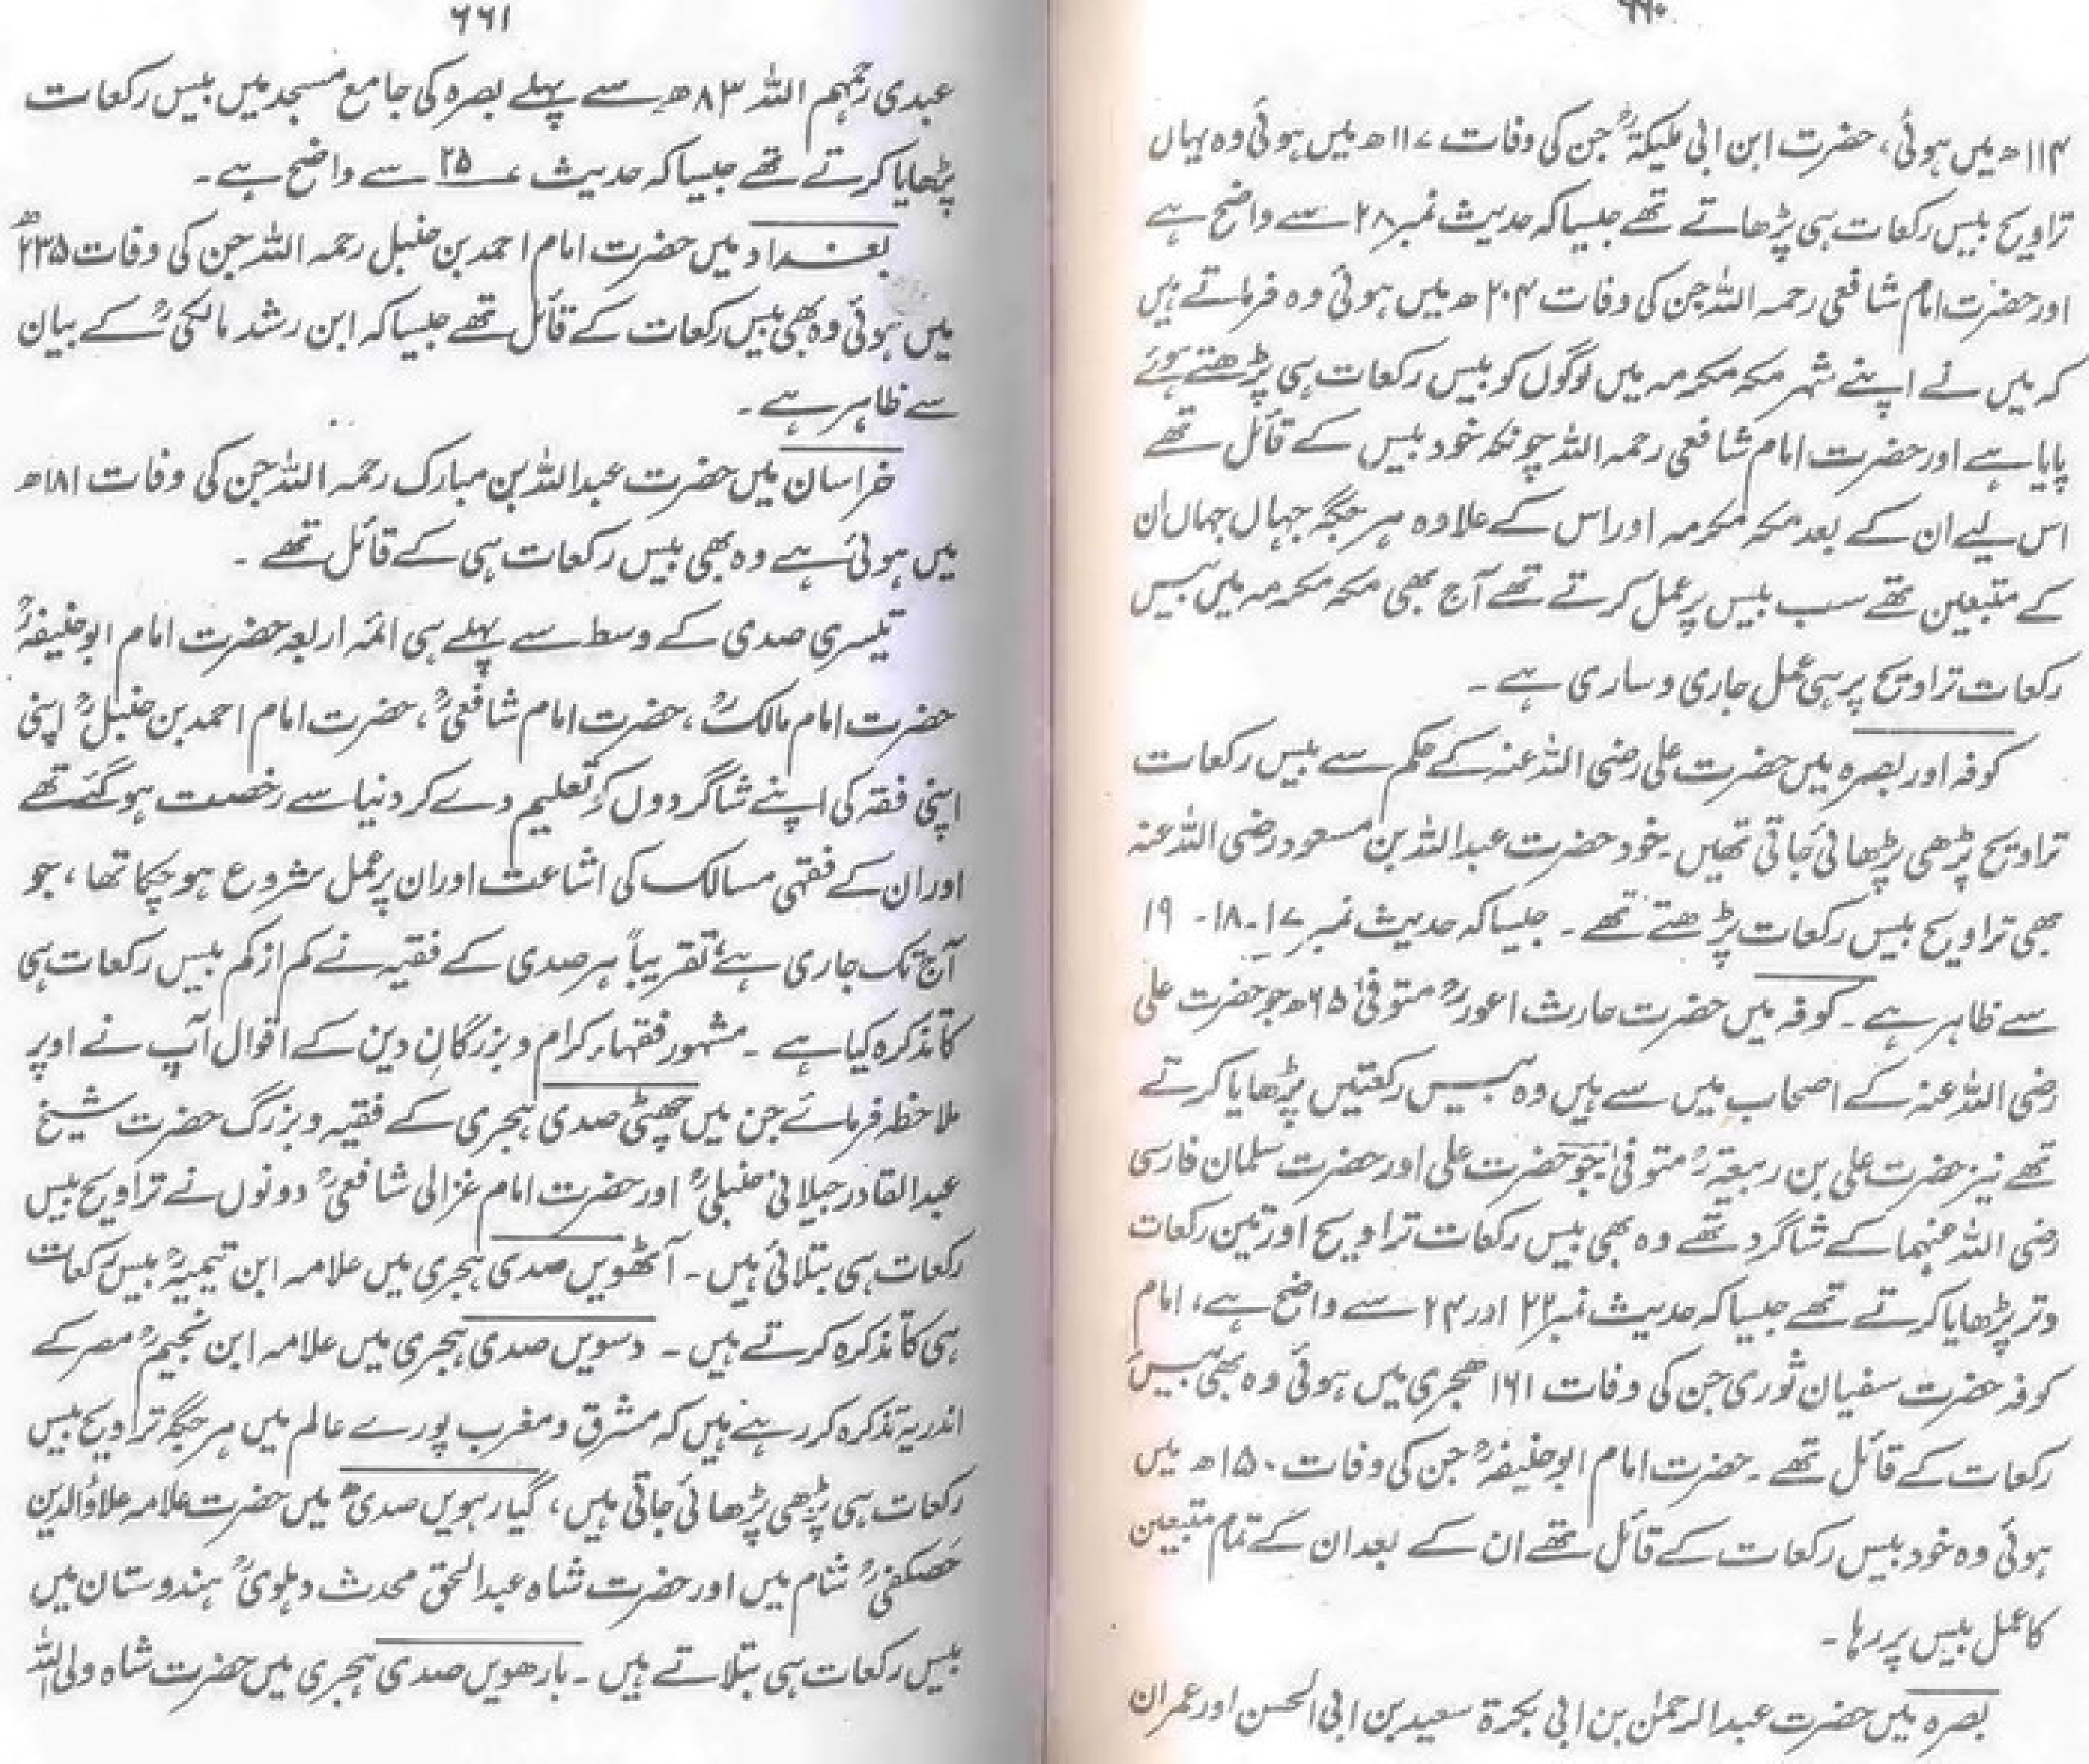 ۶۶۰
۱۱۴ھ میں ہوئی، حضرت ابن ابی ملیکۃؒ جن کی وفات ۱۱۷ھ میں ہوئی وہ یہاں
تراویح بیس رکعات ہی پڑھاتے تھے جیسا کہ حدیث نمبر ۲۸ سے واضح ہے
اور حضرت امام شافعی رحمہ اللہ جن کی وفات ۲۰۴ھ میں ہوئی وہ فرماتے ہیں
کہ میں نے اپنے شہر مکہ مکرمہ میں لوگوں کو بیس رکعات ہی پڑھتے ہوئے
پایا ہے اور حضرت امام شافعی رحمہ اللہ چونکہ خود بیس کے قائل تھے
اس لیے ان کے بعد مکہ مکرمہ اور اس کے علاوہ ہر جگہ جہاں جہاں ان
کے متبعین تھے سب بیس پر عمل کرتے تھے آج بھی مکہ مکرمہ میں بیس
رکعات تراویح پر ہی عمل جاری و ساری ہے۔
کوفہ اور بصرہ میں حضرت علی رضی اللہ عنہ کے حکم سے بیس رکعات
تراویح پڑھی پڑھائی جاتی تھیں۔ خود حضرت عبداللہ بن مسعود رضی اللہ عنہ
بھی تراویح بیس رکعات پڑھتے تھے۔ جیسا کہ حدیث نمبر ۱۷۔۱۸۔ ۱۹
سے ظاہر ہے۔ کوفہ میں حضرت حارث اعورؒ متوفیٰ ۶۵ھ جو حضرت علی
رضی اللہ عنہ کے اصحاب میں سے ہیں وہ بیس رکعتیں پڑھایا کرتے
تھے نیز حضرت علی بن ربیعۃؒ متوفیٰ جو حضرت علی اور حضرت سلمان فارسی
رضی اللہ عنہما کے شاگرد تھے وہ بھی بیس رکعات تراویح اور تین رکعات
وتر پڑھایا کرتے تھے جیسا کہ حدیث نمبر ۲۲ اور ۲۴ سے واضح ہے، امام
کوفہ حضرت سفیان ثوری جن کی وفات ۱۶۱ ھجری میں ہوئی وہ بھی بیس
رکعات کے قائل تھے۔ حضرت امام ابوحنیفہؒ جن کی وفات ۱۵۰ھ میں
ہوئی وہ خود بیس رکعات کے قائل تھے ان کے بعد ان کے تمام متبعین
کا عمل بیس پر رہا۔
بصرہ میں حضرت عبدالرحمٰن بن ابی بکرۃ سعید بن ابی الحسن اور عمران
۶۶۱
عبدی رحمہم اللہ ۸۳ھ سے پہلے بصرہ کی جامع مسجد میں بیس رکعات
پڑھایا کرتے تھے جیسا کہ حدیث ۲۵ سے واضح ہے۔
بغداد میں حضرت امام احمد بن حنبل رحمہ اللہ جن کی وفات ۲۳۵ھ
میں ہوئی وہ بھی بیس رکعات کے قائل تھے جیسا کہ ابن رشد مالکیؒ کے بیان
سے ظاہر ہے۔
خراسان میں حضرت عبداللہ بن مبارک رحمہ اللہ جن کی وفات ۱۸۱ھ
میں ہوئی ہے وہ بھی بیس رکعات ہی کے قائل تھے۔
تیسری صدی کے وسط سے پہلے ہی ائمہ اربعہ حضرت امام ابوحنیفہؒ
حضرت امام مالکؒ، حضرت امام شافعیؒ، حضرت امام احمد بن حنبلؒ اپنی
اپنی فقہ کی اپنے شاگردوں کو تعلیم دے کر دنیا سے رخصت ہو گئے تھے
اور ان کے فقہی مسالک کی اشاعت اور ان پر عمل شروع ہو چکا تھا، جو
آج تک جاری ہے، تقریباً ہر صدی کے فقیہ نے کم از کم بیس رکعات ہی
کا تذکرہ کیا ہے۔ مشہور فقہاء کرام و بزرگانِ دین کے اقوال آپ نے اوپر
ملاحظہ فرمائے جن میں چھٹی صدی ہجری کے فقیہ و بزرگ حضرت شیخ
عبدالقادر جیلانی حنبلیؒ اور حضرت امام غزالی شافعیؒ دونوں نے تراویح بیس
رکعات ہی بتلائی ہیں۔ آٹھویں صدی ہجری میں علامہ ابن تیمیہؒ بیس رکعات
ہی کا تذکرہ کرتے ہیں۔ دسویں صدی ہجری میں علامہ ابن نجیمؒ مصر کے
اندر یہ تذکرہ کر رہے ہیں کہ مشرق و مغرب پورے عالم میں ہر جگہ تراویح بیس
رکعات ہی پڑھی پڑھائی جاتی ہیں، گیارہویں صدی میں حضرت علامہ علاؤالدین
حصکفیؒ شام میں اور حضرت شاہ عبدالحق محدث دہلویؒ ہندوستان میں
بیس رکعات ہی بتلاتے ہیں۔ بارھویں صدی ہجری میں حضرت شاہ ولی اللہ